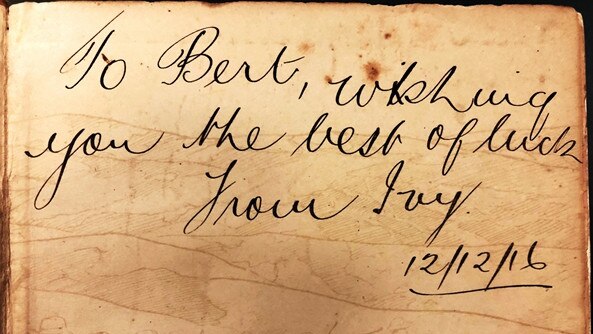 To Bert, wishing
you the best of luck
From Ivy
12/12/16